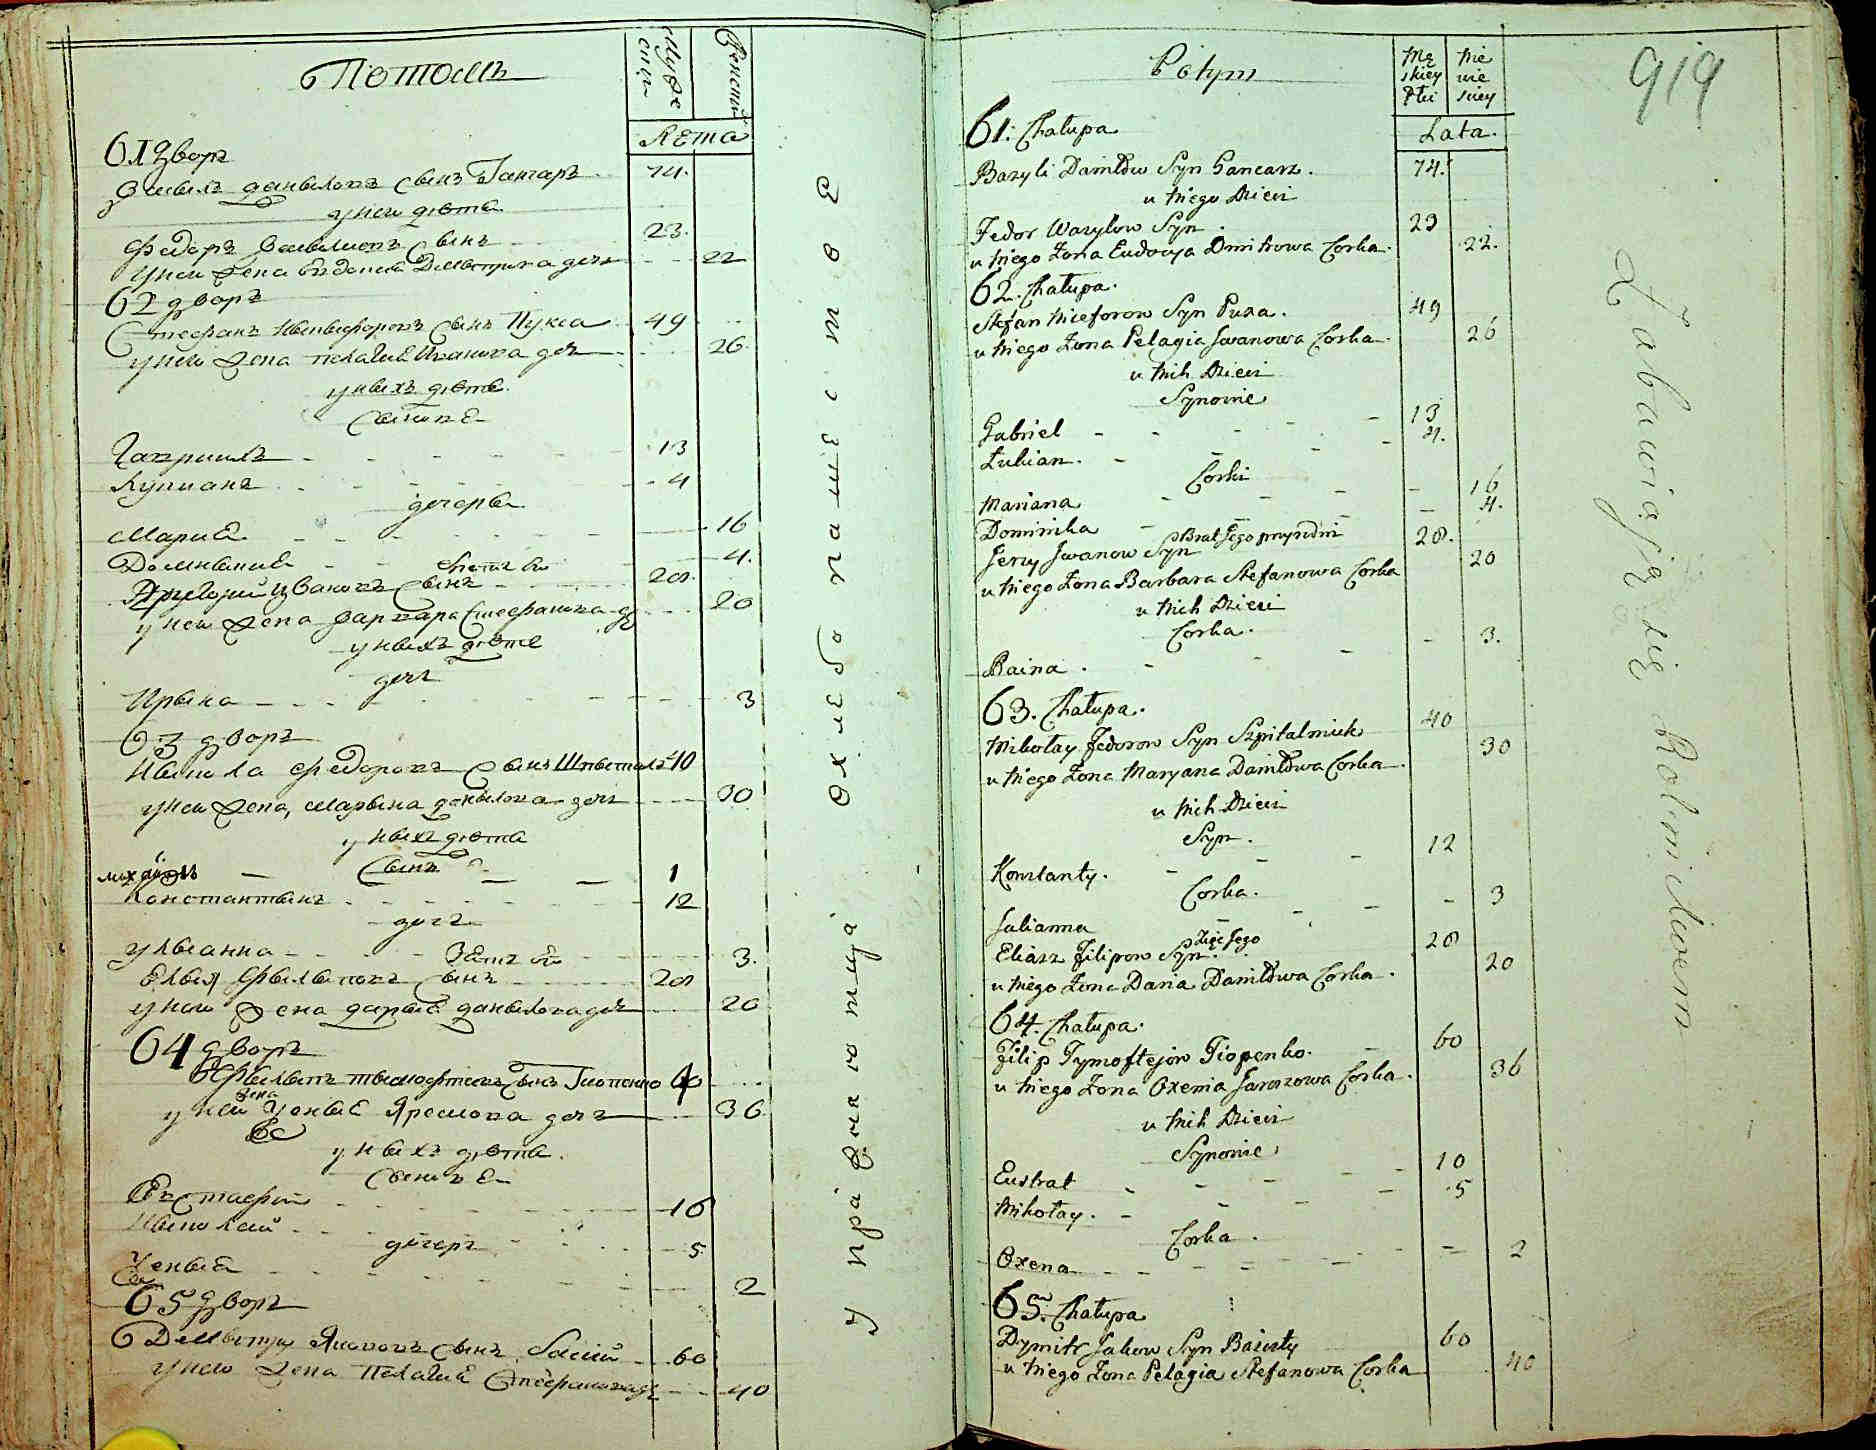 Потомъ
Муже
ски
Женски
Лѣта
61 дворъ
Василъ Даныловъ Сынъ Ганчаръ 74.
у него дѣти
Федоръ Василиевъ Сынъ 23.
у него Жена Евдокия Дмитриева дочь 22
62 дворъ
Стефанъ Никифоровъ Сынъ Пукса 49
у него Жена Пелагия Иванова дочь 26.
у нихъ дѣти
Сынове
Гавриилъ 13
Лукианъ 4
дочери
Мария 16
Доминикия 4.
Иванов Сынъ 28.
у него Жена Варвара Стефанова 20
у нихъ дѣти
дочь
Ирина 3
63 дворъ
Никола Федоровъ Сынъ 40
у него Жена, Марына Данылова дочь 30
у нихъ дѣти
Сынъ
Михаилъ 1
Константинъ 12
дочь
Улианна 3.
Зять его
Елия Филиповъ Сынъ 28
у него Жена Дария Данылова дочь 20
64 дворъ
Филипъ Тимофтеевъ Сынъ 60
у него Жена Ксения Яремова дочь 36.
у нихъ дѣти.
Сынове
Евстафий 10
Николай 5
дочерь
Ксения 2
65 дворъ
Дмитрий Яковъ Сынъ 60
у него Жена Пелагия Стефанова 40
Упражняются в хлебопашестве
Potym
Mę
skiey
Płci
Nie
wie
sciey
Lata.
919
61. Chałupa
Bazyli Daniłow Syn Gancarz. 74.
u niego Dzieci
Fedor Wazylow Syn 23
u niego Zona Eudocya Dmitrowa Corka. 22.
62. Chałupa.
Stefan Niceforow Syn Puxa. 49
u niego Zona Pelagia Jwanowa Corka. 26
u nich Dzieci
Synowie
Gabriel 13
Łukian. 4.
Corki
Mariana 16
Dominika 4.
Brat Jego przyrodni
Jerzy Jwanow Syn 28.
u niego Zona Barbara Stefanowa Corka 20
u nich Dzieci
Corka.
Raina. 3.
63. Chałupa.
Mikołay Fedorow Syn Szpitalniuk 40
u niego Zona Maryana Daniłowa Corka. 30
u nich Dzieci
Syn.
Konstanty. 12
Corka.
Julianna 3
Zięc Jego
Eliasz Filipow Syn. 28
u niego Zona Daria Daniłowa Corka. 20
64. Chałupa.
Filip Tymoftejow Tiopenko. 60
u niego Zona Oxenia Jaroszowa Corka. 36
u nich Dzieci
Synowie
Eustrat 10
Mikołay. 5
Corka.
Oxena 2
65. Chałupa
Dymitr Jakow Syn 60
u niego Zona Pelagia Stefanowa Corka 40
Zabawiają się Rolnictwem